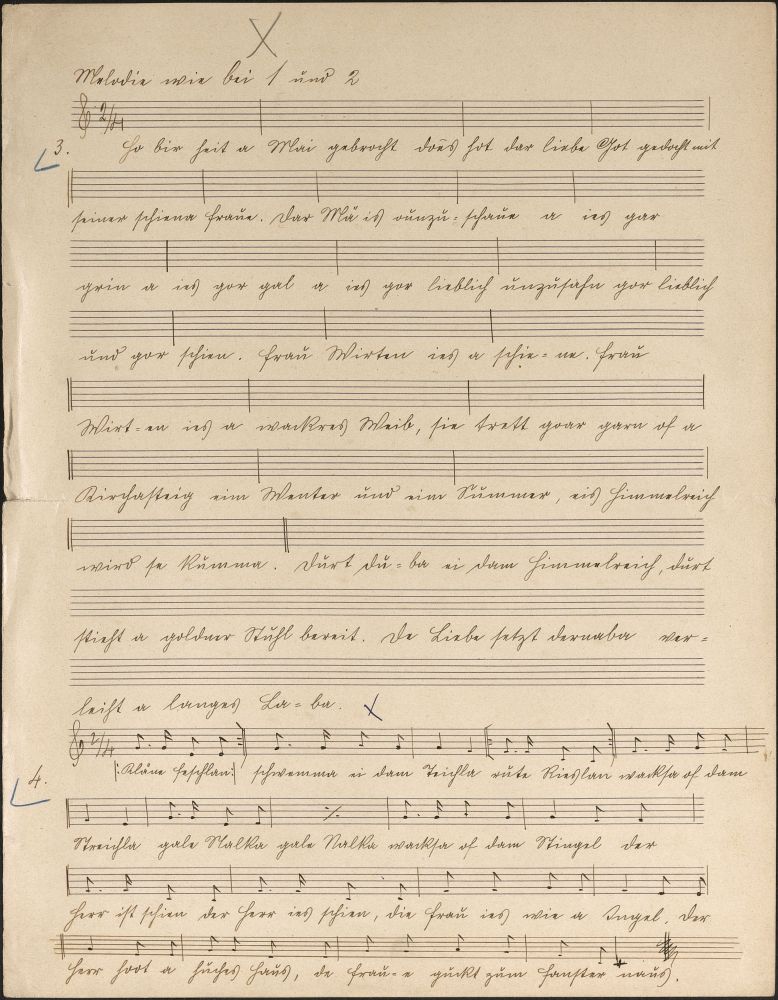 Melodie wie bei 1 und 2
2/4
3. Ho bir heit a Mai gebrocht does hot dar liebe Got gedocht mit
seiner schiena Fraue. Dar Mä is ounzu=schaue a ies gar
grin a ies gor gal a ies gor lieblich unzusahn gor lieblich
und gor schien. Frau Wirten ies a schie=ne. Frau
Wirt=en ies a wackres Weib, sie trett goar garn of a
Kirchasteig eim Wenter und eim Summer, eis Himmelreich
wird se kumma. Durt du=ba ei dam Himmelreich, durt
stieht a goldner Stuhl bereit. De Liebe setzt dernaba ver=
leiht a langes La=ba.
2/4
4. |: Kläne Feschlan :| schwemma ei dam Teichla rute Rieslan wacksa of dam
Streichla gale Nalka gale Nalka wacksa of dam Stingel der
Herr ist schien der Herr ies schien, die Frau ies wie a Engel. Der
Herr hoot a huches Haus, de Frau=e guckt zum Fanster naus.